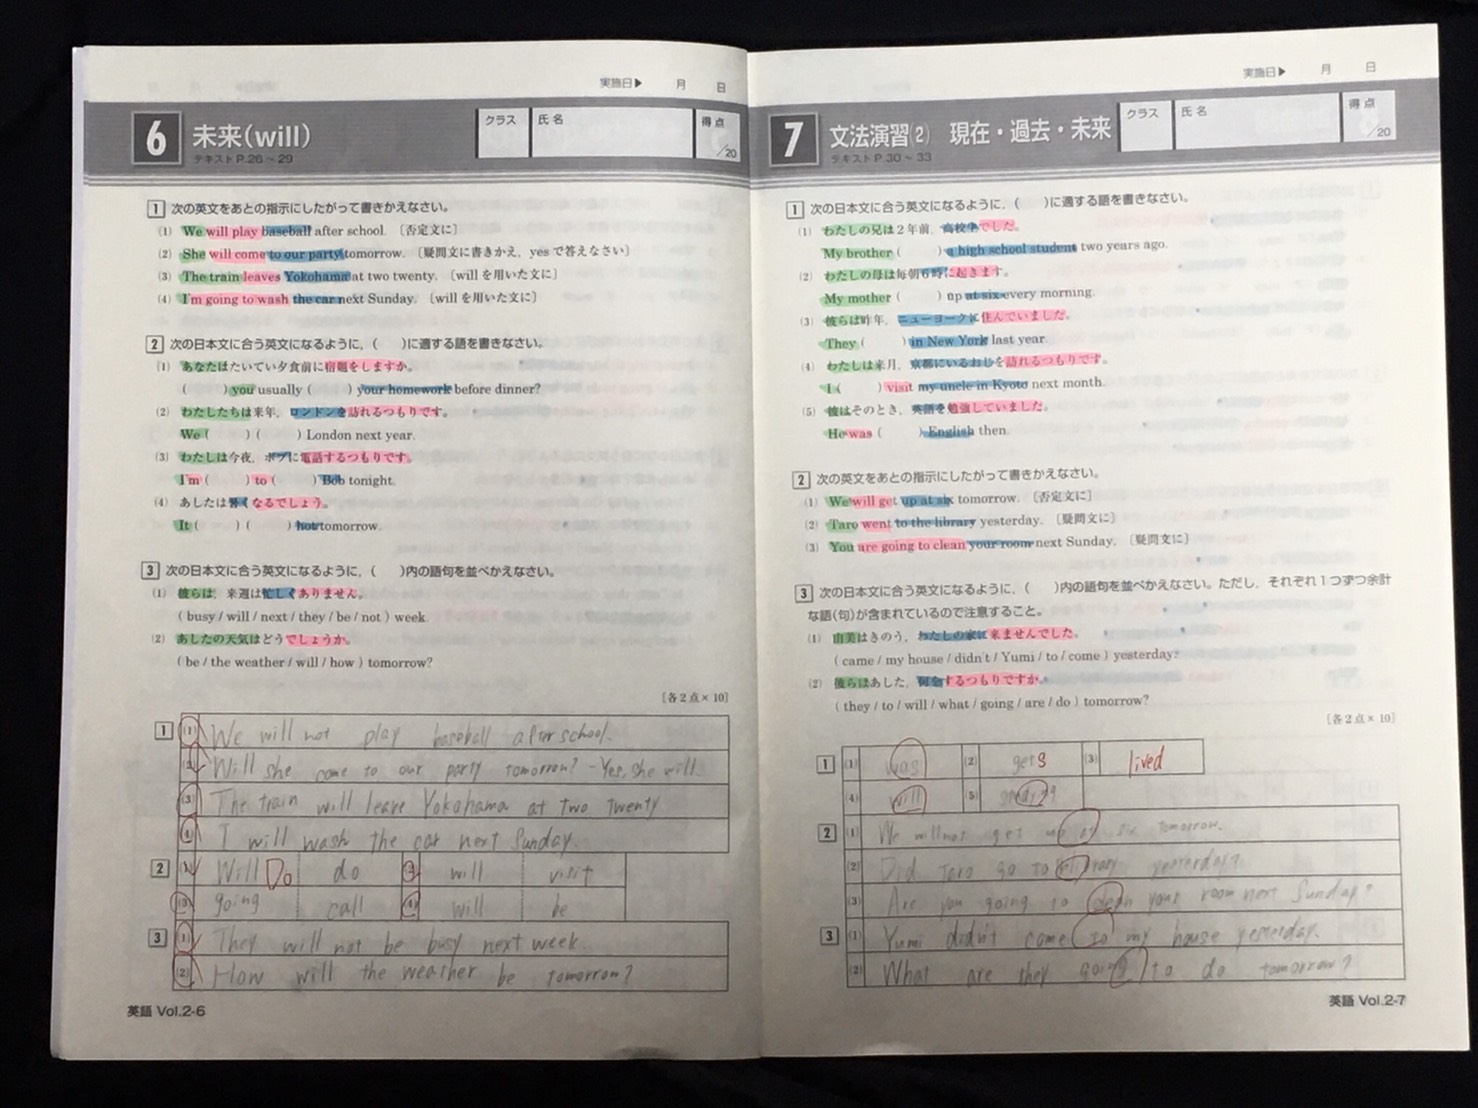 実施日▶ 月 日
6 未来(will)
テキストP.26～29
クラス 氏名 得点 /20
1 次の英文をあとの指示にしたがって書きかえなさい。
(1) We will play baseball after school. 〔否定文に〕
(2) She will come to our party tomorrow. 〔疑問文に書きかえ，yesで答えなさい〕
(3) The train leaves Yokohama at two twenty. 〔willを用いた文に〕
(4) I'm going to wash the car next Sunday. 〔willを用いた文に〕
2 次の日本文に合う英文になるように，( )に適する語を書きなさい。
(1) あなたはたいてい夕食前に宿題をしますか。
( ) you usually ( ) your homework before dinner?
(2) わたしたちは来年，ロンドンを訪れるつもりです。
We ( ) ( ) London next year.
(3) わたしは今夜，ボブに電話するつもりです。
I'm ( ) to ( ) Bob tonight.
(4) あしたは暑くなるでしょう。
It ( ) ( ) hot tomorrow.
3 次の日本文に合う英文になるように，( )内の語句を並べかえなさい。
(1) 彼らは，来週は忙しくありません。
( busy / will / next / they / be / not ) week.
(2) あしたの天気はどうでしょうか。
( be / the weather / will / how ) tomorrow?
[各2点×10]
1 (1) We will not play baseball after school.
(2) Will she come to our party tomorrow? -Yes, she will.
(3) The train will leave Yokohama at two twenty
(4) I will wash the car next Sunday.
2 (1) Will Do do (2) will visit
(3) going call (4) will be
3 (1) They will not be busy next week.
(2) How will the weather be tomorrow?
英語 Vol.2-6
実施日▶ 月 日
7 文法演習(2) 現在・過去・未来
テキストP.30～33
クラス 氏名 得点 /20
1 次の日本文に合う英文になるように，( )に適する語を書きなさい。
(1) わたしの兄は2年前，高校生でした。
My brother ( ) a high school student two years ago.
(2) わたしの母は毎朝6時に起きます。
My mother ( ) up at six every morning.
(3) 彼らは昨年，ニューヨークに住んでいました。
They ( ) in New York last year.
(4) わたしは来月，京都にいるおじを訪れるつもりです。
I ( ) visit my uncle in Kyoto next month.
(5) 彼はそのとき，英語を勉強していました。
He was ( ) English then.
2 次の英文をあとの指示にしたがって書きかえなさい。
(1) We will get up at six tomorrow. 〔否定文に〕
(2) Taro went to the library yesterday. 〔疑問文に〕
(3) You are going to clean your room next Sunday. 〔疑問文に〕
3 次の日本文に合う英文になるように，( )内の語句を並べかえなさい。ただし，それぞれ1つずつ余計
な語(句)が含まれているので注意すること。
(1) 由美はきのう，わたしの家に来ませんでした。
( came / my house / didn't / Yumi / to / come ) yesterday.
(2) 彼らはあした，何をするつもりですか。
( they / to / will / what / going / are / do ) tomorrow?
[各2点×10]
1 (1) was (2) gets (3) lived
(4) will (5)
2 (1) We will not get up at six tomorrow.
(2) Did Taro go to yesterday?
(3) Are you going to clean your room next Sunday?
3 (1) Yumi didn't come to my house yesterday.
(2) What are they going to do tomorrow?
英語 Vol.2-7